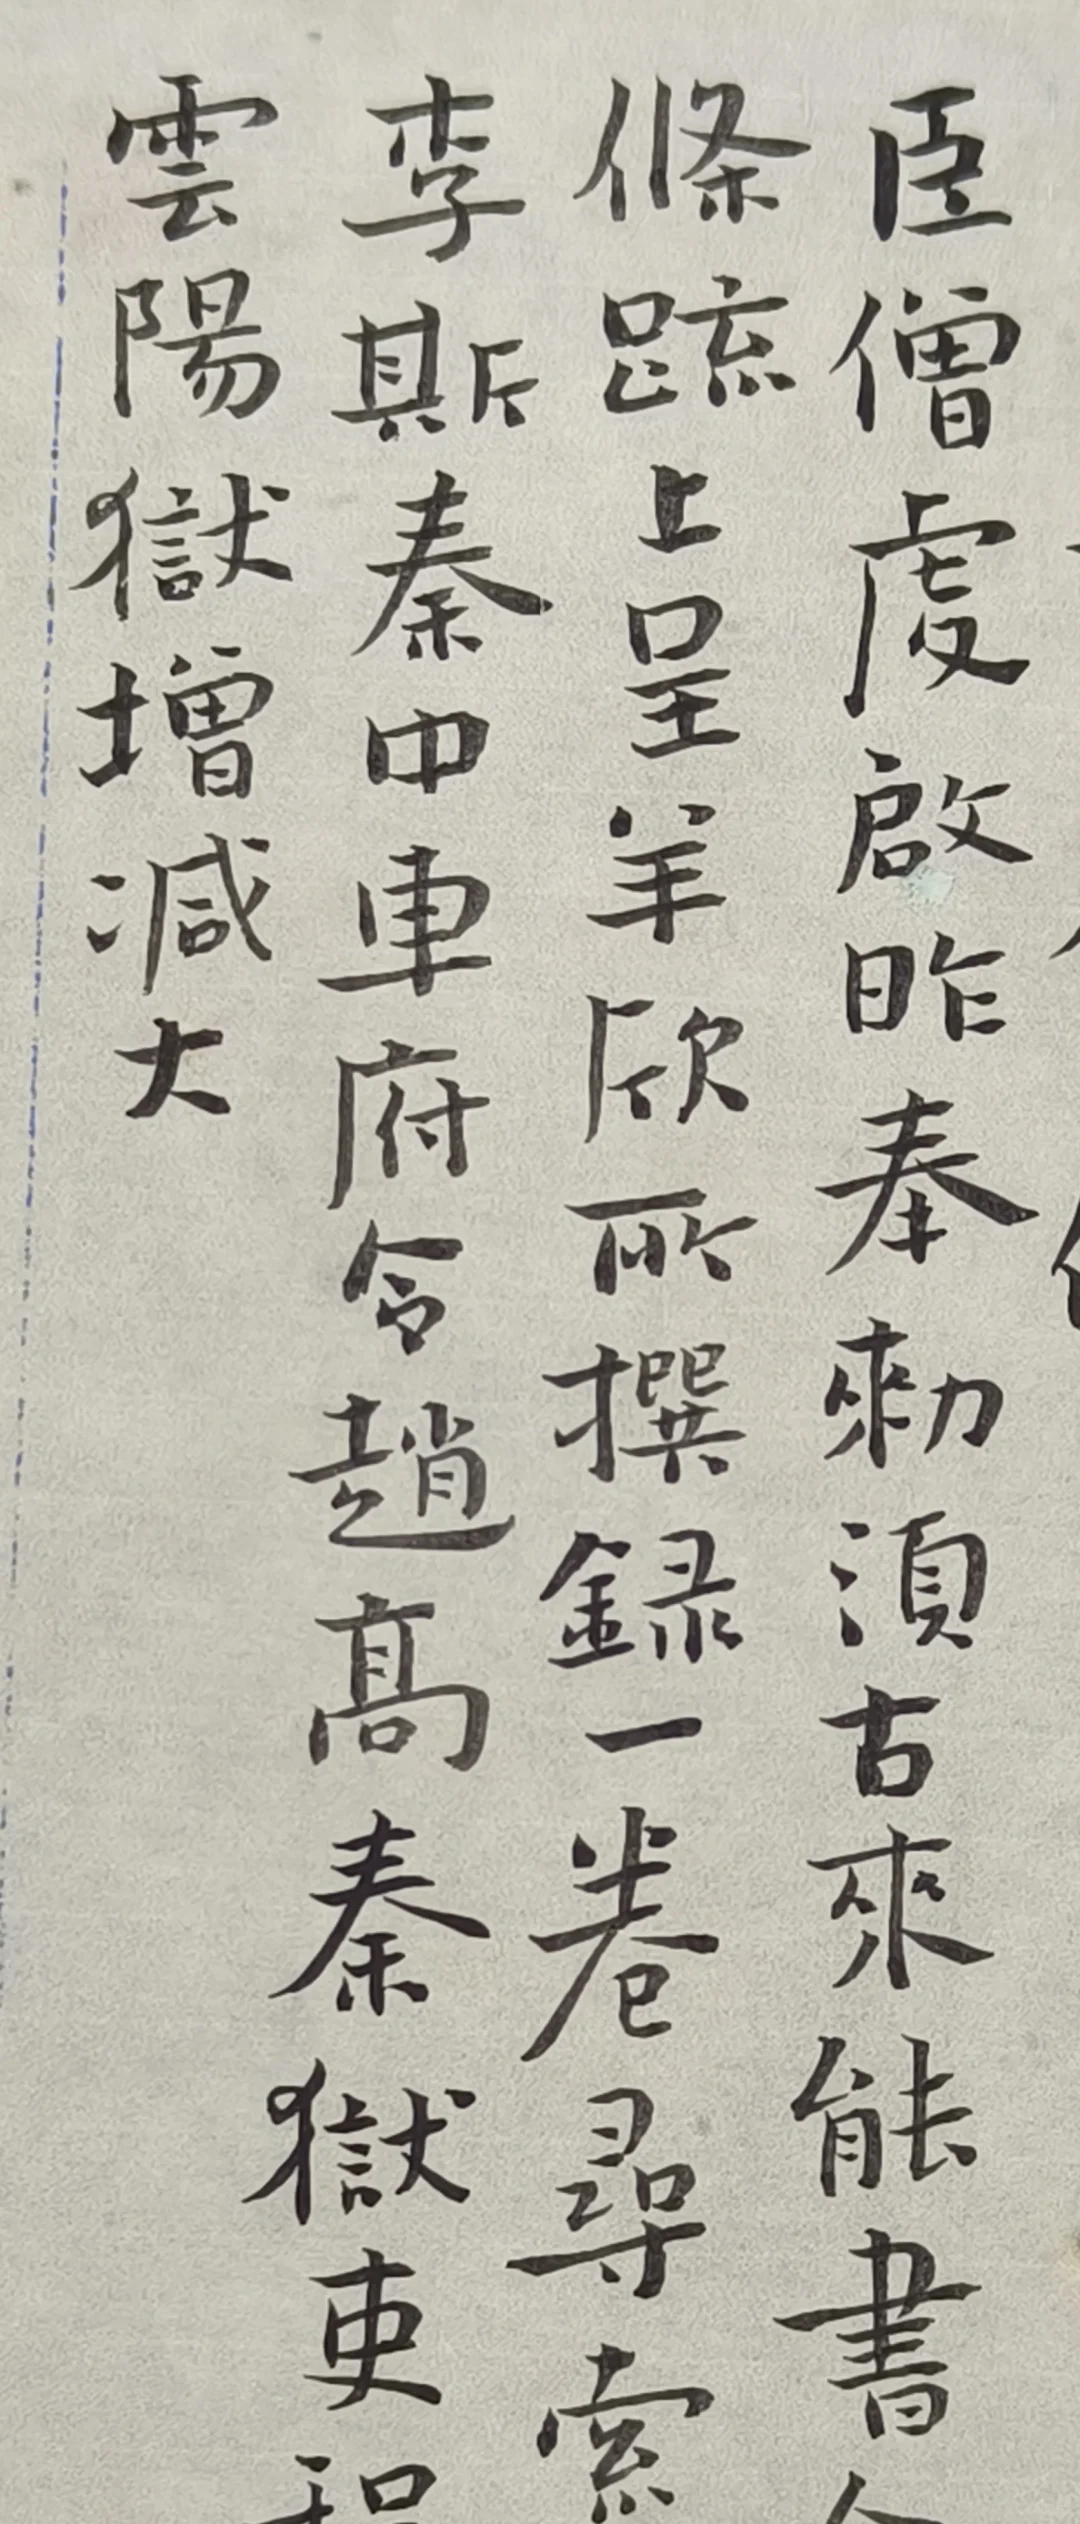 臣僧虔啟昨奉勑須古來能書人
條疏上呈羊欣所撰録一卷尋索
李斯秦中車府令趙高秦獄吏程
雲陽獄增減大